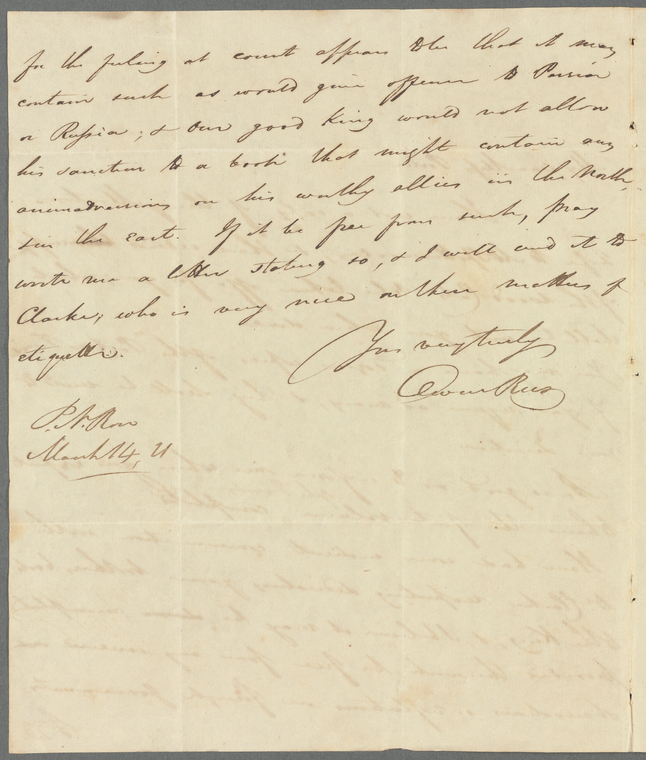 for the feeling at court appears to be that it may
contain such as would give offence to Persia
or Russia; & our good King would not allow
his sanction to a book that might contain any
animadversions on his worthy allies in the North,
& in the East. If it be free from such, pray
write me a letter stating so, & I will send it to
Clarke; who is very nice on these matters of
etiquette.
Yrs very truly
Owen Rees
P. N. Row
March 14, 21